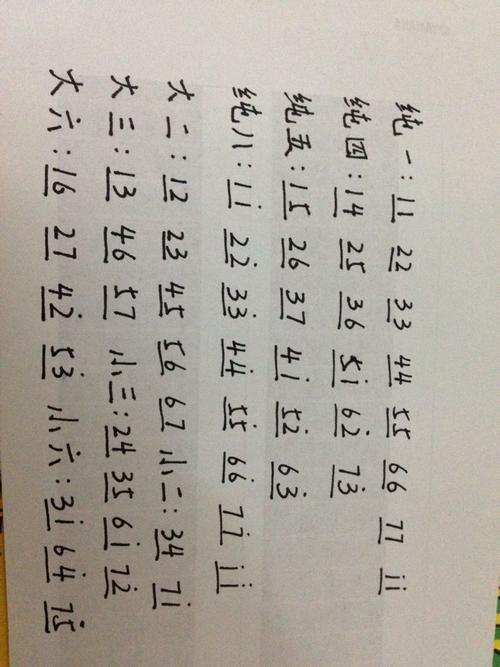 纯一: 11 22 33 44 55 66 77 1̇1̇
纯四: 14 25 36 51̇ 62̇ 73̇
纯五: 15 26 37 41̇ 52̇ 63̇
纯八: 11̇ 22̇ 33̇ 44̇ 55̇ 66̇ 77̇ 1̇1̇
大二: 12 23 45 56 67 小二: 34 71̇
大三: 13 46 57 小三: 24 35 61̇ 72̇
大六: 16 27 42̇ 53̇ 小六: 31̇ 64̇ 75̇